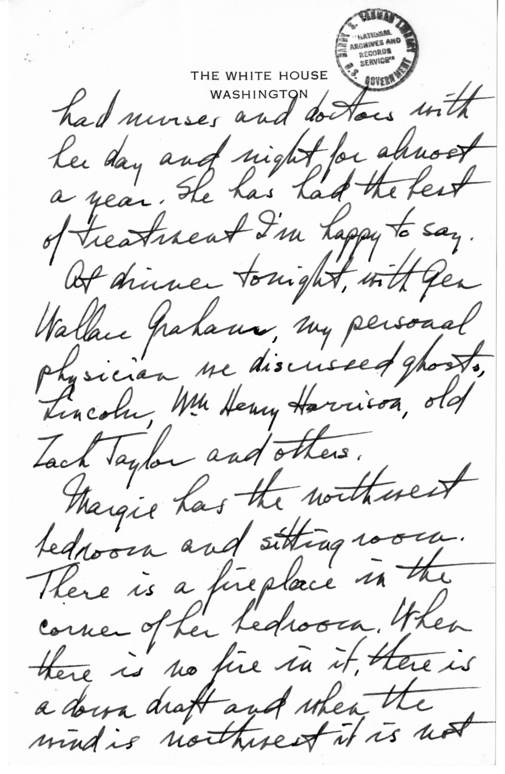 HARRY S. TRUMAN LIBRARY
"NATIONAL
ARCHIVES AND
RECORDS
SERVICE"
U.S. GOVERNMENT
THE WHITE HOUSE
WASHINGTON
had nurses and doctors with
her day and night for almost
a year. She has had the best
of treatment I'm happy to say.
At dinner tonight, with Gen
Wallace Graham, my personal
physician we discussed ghosts,
Lincoln, Wm Henry Harrison, old
Zach Taylor and others.
Margie has the northwest
bedroom and sitting room.
There is a fireplace in the
corner of her bedroom. When
there is no fire in it, there is
a down draft and when the
wind is northwest it is not